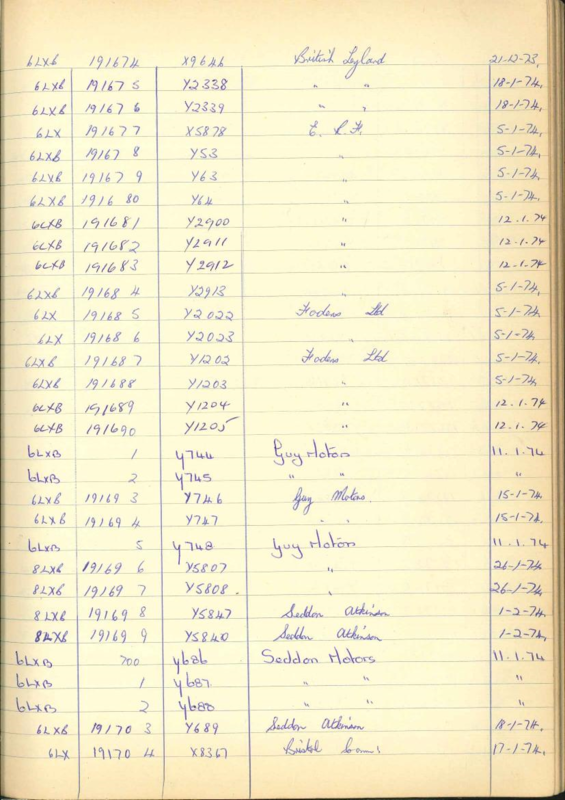 6LXB 191674 X9646 British Leyland 21-12-73.
6LXB 191675 Y2338 " " 18-1-74.
6LXB 191676 Y2339 " " 18-1-74.
6LX 191677 X5878 E. R. F. 5-1-74.
6LXB 191678 Y53 " 5-1-74.
6LXB 191679 Y63 " 5-1-74.
6LXB 191680 Y64 " 5-1-74.
6LXB 191681 Y2900 " 12.1.74
6LXB 191682 Y2911 " 12.1.74
6LXB 191683 Y2912 " 12.1.74
6LXB 191684 Y2913 " 5-1-74.
6LX 191685 Y2022 Fodens Ltd 5-1-74.
6LX 191686 Y2023 " 5-1-74.
6LXB 191687 Y1202 Fodens Ltd 5-1-74.
6LXB 191688 Y1203 " 5-1-74.
6LXB 191689 Y1204 " 12.1.74
6LXB 191690 Y1205 " 12.1.74
6LXB 1 Y744 Guy Motors 11.1.74
6LXB 2 Y745 " " "
6LXB 191693 Y746 Guy Motors. 15-1-74.
6LXB 191694 Y747 " " 15-1-74.
6LXB 5 Y748 Guy Motors 11.1.74
8LXB 191696 Y5807 " 26-1-74.
8LXB 191697 Y5808. " 26-1-74.
8LXB 191698 Y5847 Seddon Atkinson 1-2-74.
8LXB 191699 Y5840 Seddon Atkinson 1-2-74.
6LXB 700 Y686 Seddon Motors 11.1.74
6LXB 1 Y687 " " "
6LXB 2 Y688 " " "
6LXB 191703 Y689 Seddon Atkinson 18-1-74.
6LX 191704 X8367 Bristol 17-1-74.